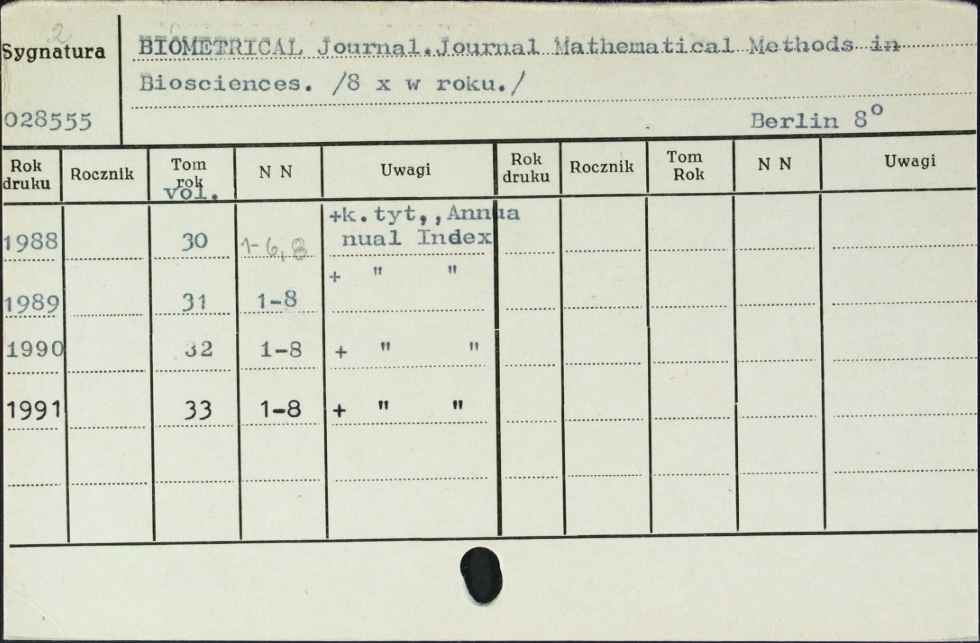 2
Sygnatura
BIOMETRICAL Journal.Journal Mathematical Methods in
Biosciences. /8 x w roku./
028555
Berlin 8°
Rok druku Rocznik Tom rok vol. N N Uwagi Rok druku Rocznik Tom Rok N N Uwagi
+k.tyt,,Annua
1988 30 1-6,8 nual Index
+ " "
1989 31 1-8
1990 32 1-8 + " "
1991 33 1-8 + " "